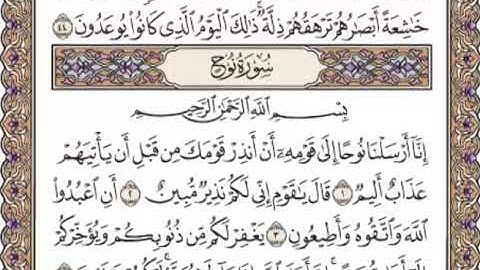 خَٰشِعَةً أَبْصَٰرُهُمْ تَرْهَقُهُمْ ذِلَّةٌ ۚ ذَٰلِكَ ٱلْيَوْمُ ٱلَّذِى كَانُوا۟ يُوعَدُونَ ٤٤
سُورَةُ نُوحٍ
بِسْمِ ٱللَّهِ ٱلرَّحْمَٰنِ ٱلرَّحِيمِ
إِنَّآ أَرْسَلْنَا نُوحًا إِلَىٰ قَوْمِهِۦٓ أَنْ أَنذِرْ قَوْمَكَ مِن قَبْلِ أَن يَأْتِيَهُمْ
عَذَابٌ أَلِيمٌ ١ قَالَ يَٰقَوْمِ إِنِّى لَكُمْ نَذِيرٌ مُّبِينٌ ٢ أَنِ ٱعْبُدُوا۟
ٱللَّهَ وَٱتَّقُوهُ وَأَطِيعُونِ ٣ يَغْفِرْ لَكُم مِّن ذُنُوبِكُمْ وَيُؤَخِّرْكُمْ